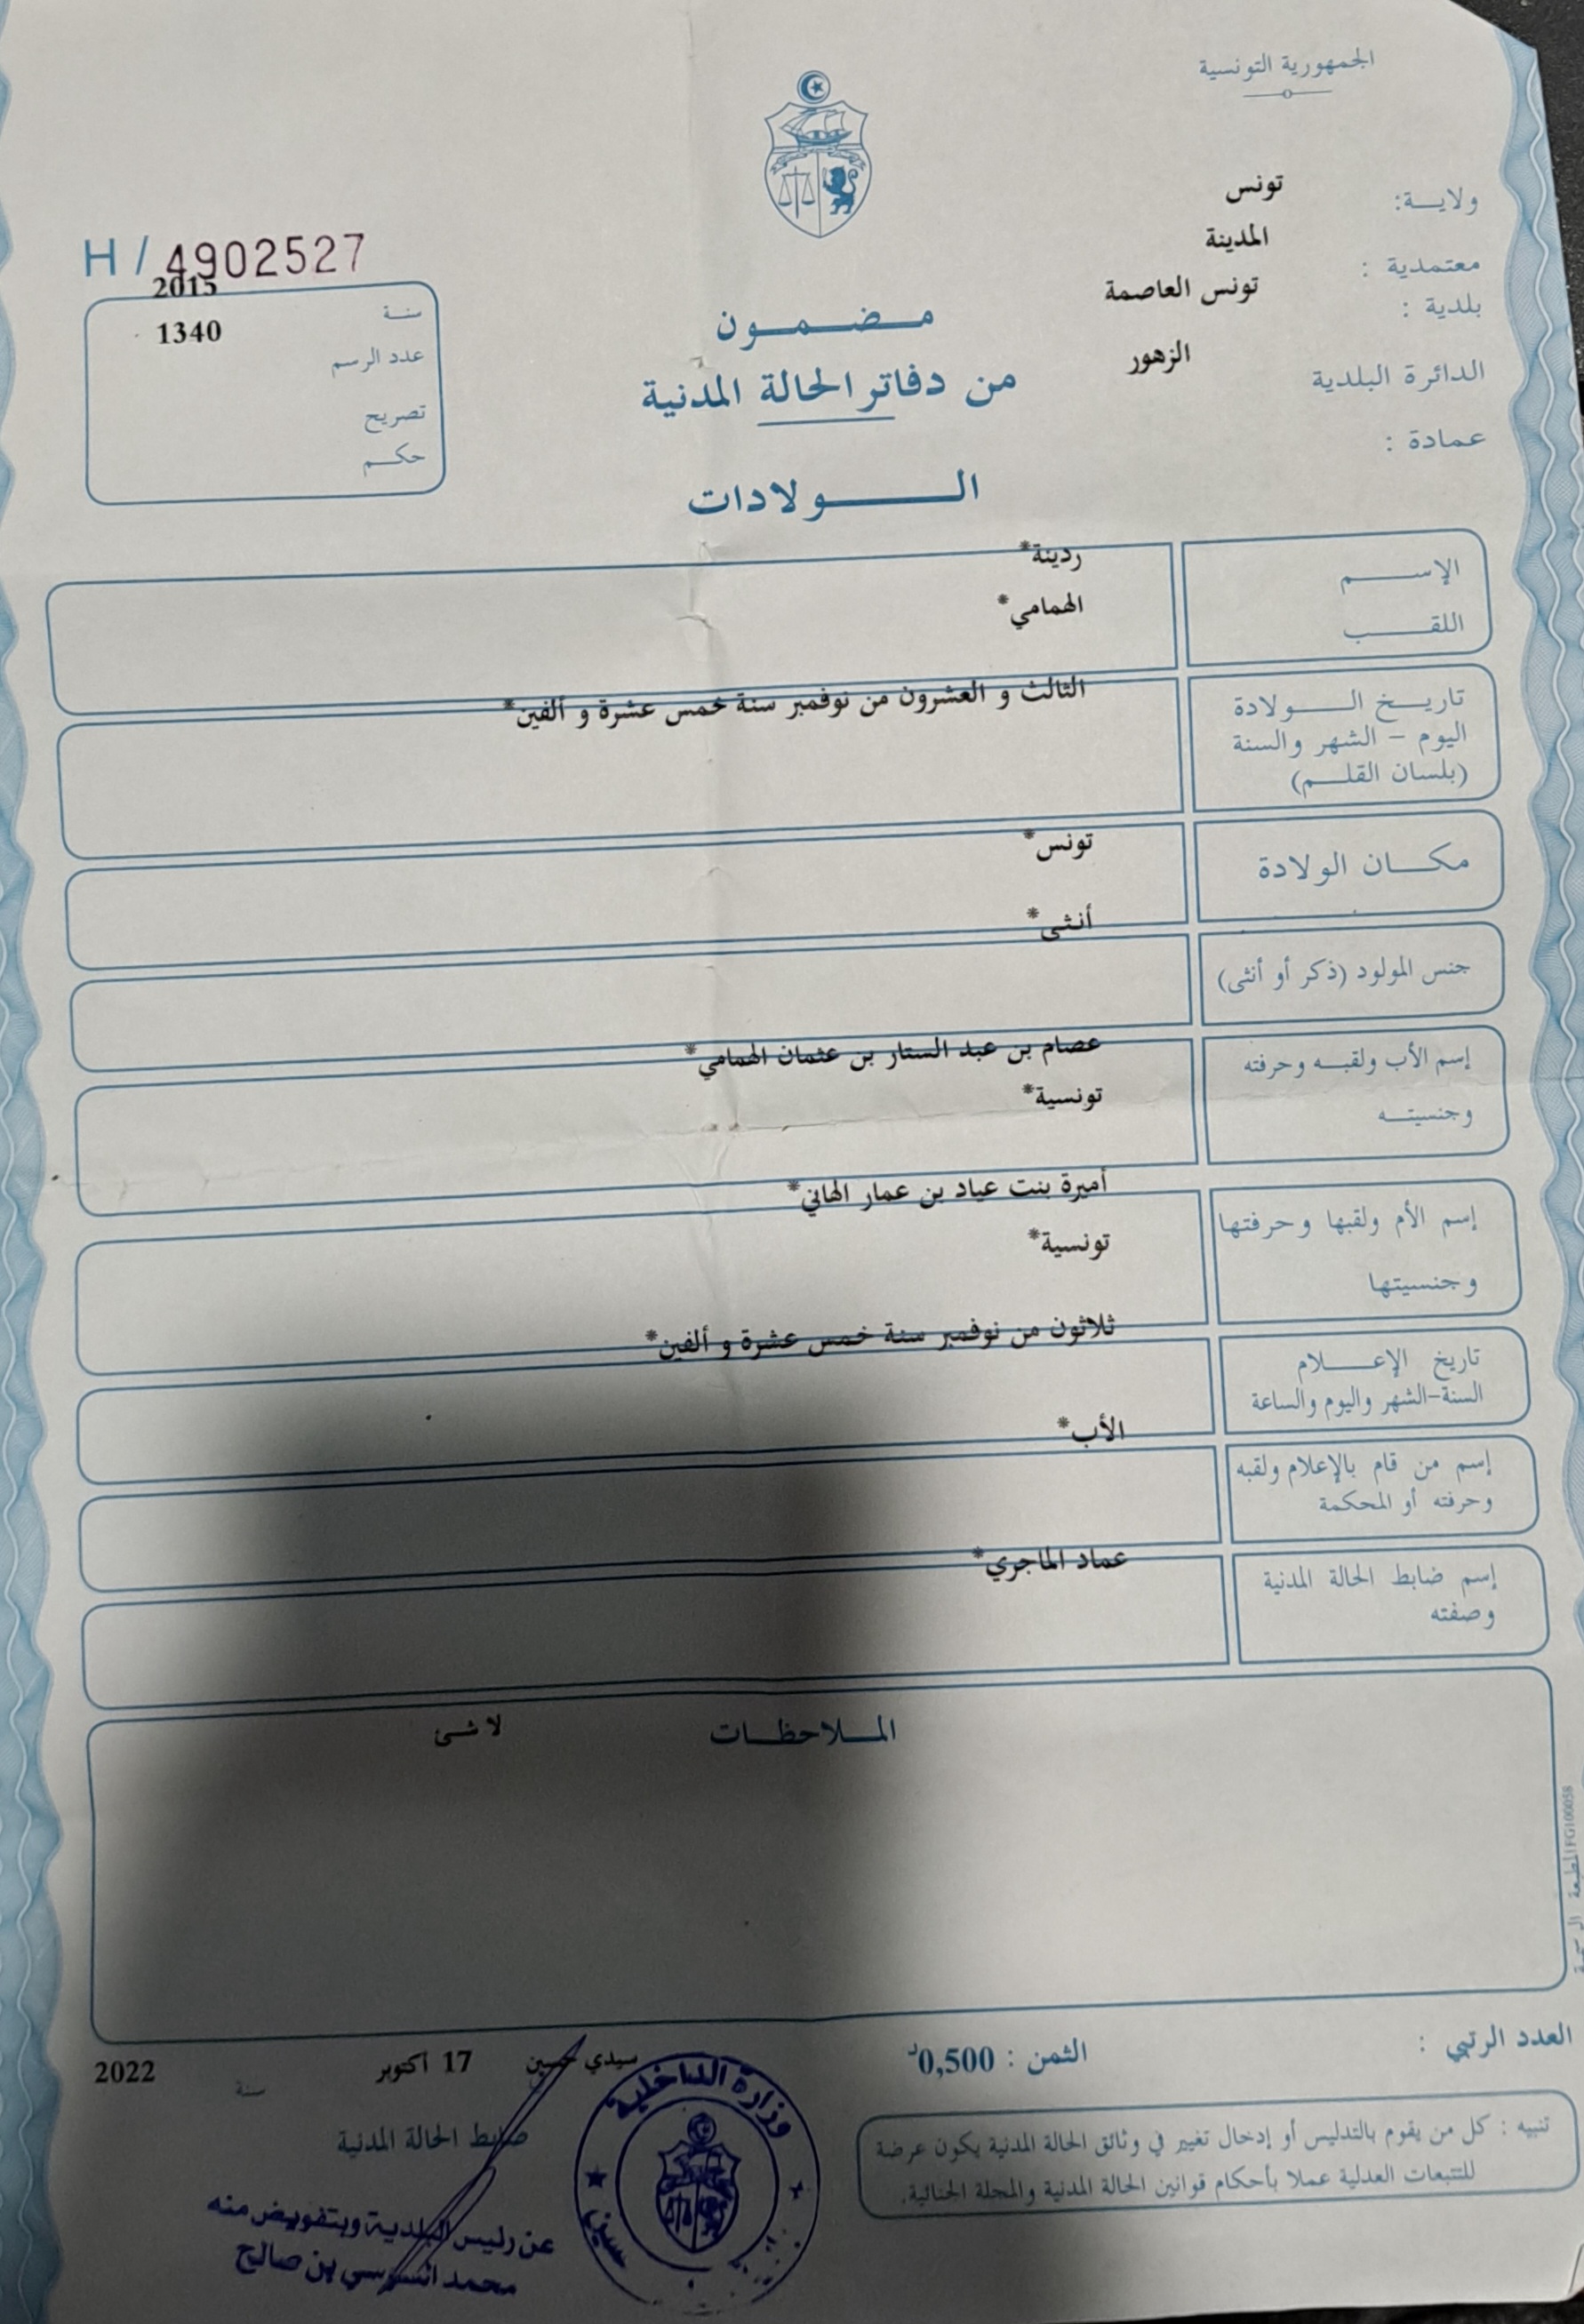 الجمهورية التونسية
ولايـــة: تونس
معتمدية : المدينة
بلدية : تونس العاصمة
الدائرة البلدية الزهور
عمادة :
H / 4902527
سنــة 2015
عدد الرسم 1340
تصريح
حكــم
مـضـمـون
من دفاتر الحالة المدنية
الـولادات
الإســـم ردينة*
اللقــب الهمامي*
تاريـخ الـــولادة
اليوم – الشهر والسنة
(بلسان القلــم)
الثالث و العشرون من نوفمبر سنة خمس عشرة و ألفين*
مكــان الولادة تونس*
جنس المولود (ذكر أو أنثى) أنثى*
إسم الأب ولقبــه وحرفته
وجنسيتــه
عصام بن عبد الستار بن عثمان الهمامي*
تونسية*
إسم الأم ولقبها وحرفتها
وجنسيتها
أميرة بنت عياد بن عمار الهاني*
تونسية*
تاريخ الإعـــلام
السنة-الشهر واليوم والساعة
ثلاثون من نوفمبر سنة خمس عشرة و ألفين*
إسم من قام بالإعلام ولقبه
وحرفته أو المحكمة
الأب*
إسم ضابط الحالة المدنية
وصفته
عماد الماجري*
المـلاحظـات لا شئ
المطبعة الرسمية FG100058
العدد الرتبي :
الثمن : 0,500د
سيدي حسين 17 أكتوبر سنة 2022
ضابط الحالة المدنية
تنبيه : كل من يقوم بالتدليس أو إدخال تغيير في وثائق الحالة المدنية يكون عرضة
للتتبعات العدلية عملا بأحكام قوانين الحالة المدنية والمجلة الجنائية.
وزارة الداخلية
حسين
عن رئيس البلدية وبتفويض منه
محمد السوسي بن صالح